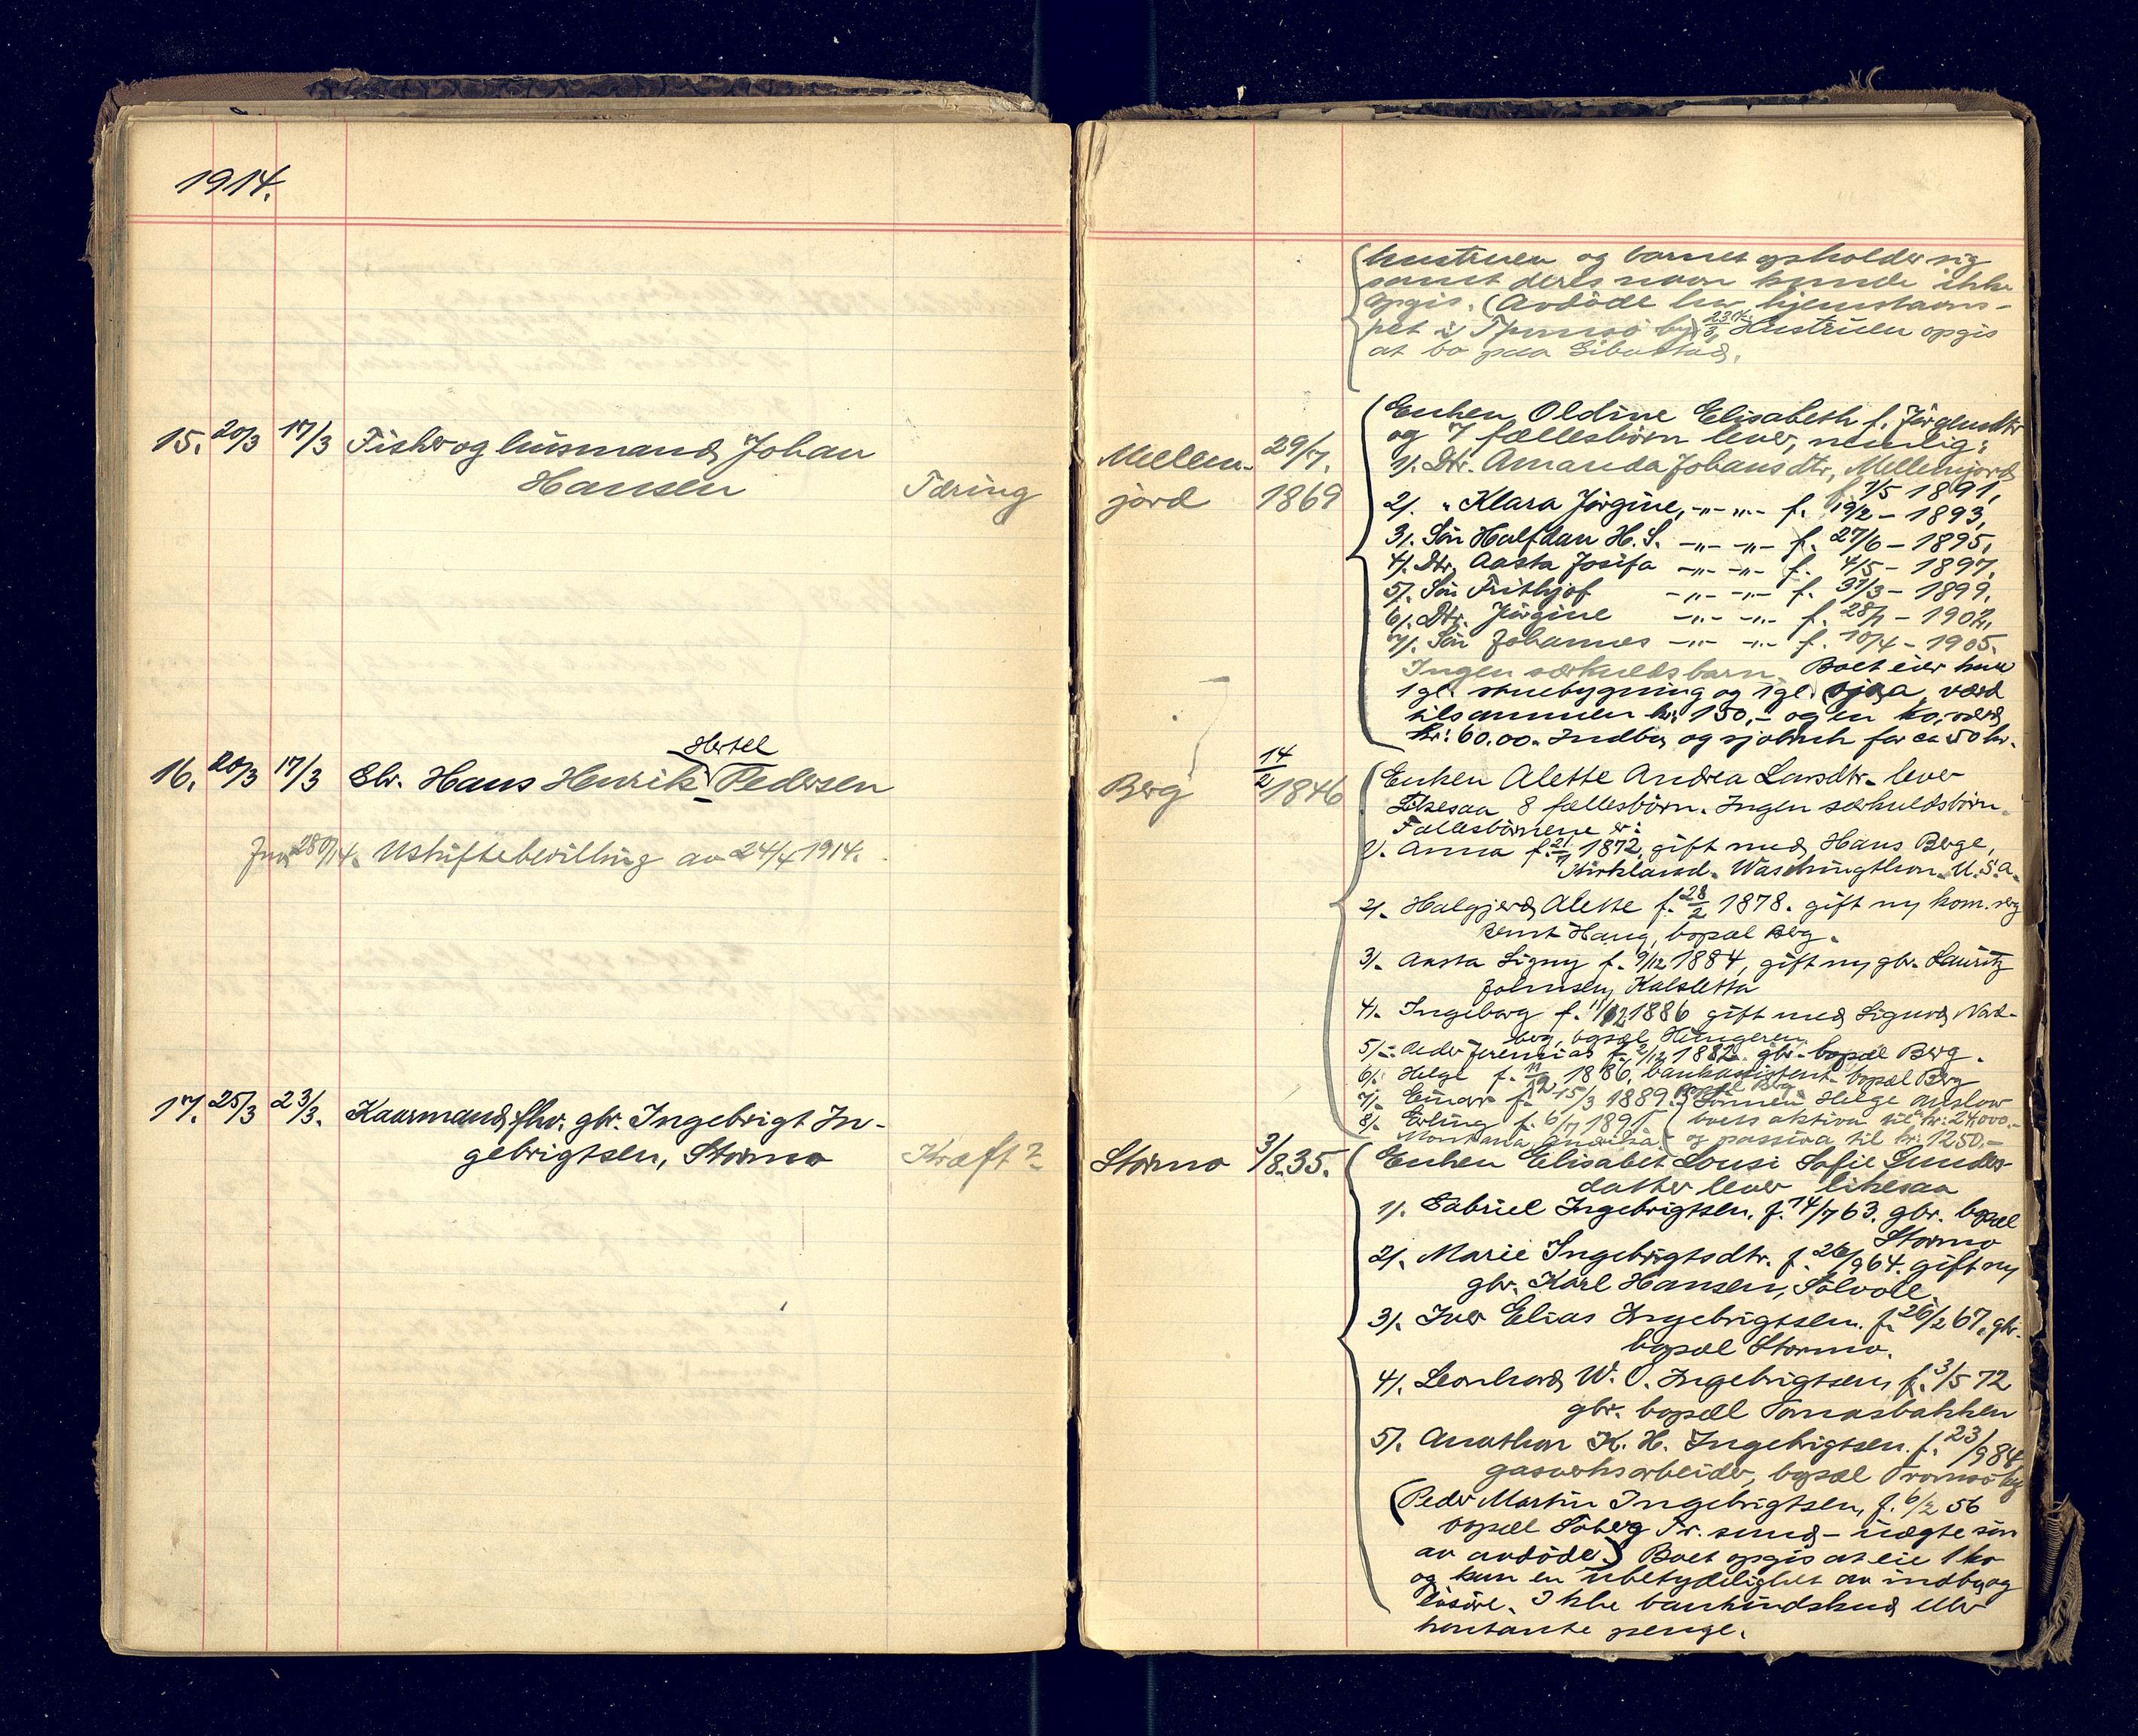 1914.
15. 20/3 17/3 Fisker og husmand Johan
Hansen Tæring
16. 20/3 17/3 Gbr. Hans Henrik Hertel Pedersen
28/4 14. Uskiftebevilling av 24/4 1914.
17. 25/3 23/3. Kaarmand, fhv. gbr. Ingebrigt In-
gebrigtsen, Stormo Kræft?
hustruen og barnet opholder sig
samt deres navn kunde ikke
opgis. (Avdöde har hjemstavns-
ret i Tromsö by) 23/3 Hustruen opgis
at bo paa Gibostad.
Mellem- 29/7.
jord 1869
Enken Oldine Elisabeth f. Jörgensdtr
og 7 fællesbörn lever, nemlig:
1/. Dtr. Amanda Johansdtr, Mellemjord
f. 7/5 1891,
2/. " Klara Jörgine, -"- -"- f. 19/2 - 1893,
3/. Sön Halfdan H. S. -"- -"- f. 27/6 - 1895,
4/. Dtr. Aasta Josefa -"- -"- f. 4/5 - 1897,
5/. Sön Frithjof -"- -"- f. 31/3 - 1899,
6/. Dtr. Jörgine -"- -"- f. 28/1 - 1902,
7/. Sön Johannes -"- -"- f. 10/4 - 1905.
Ingen særkuldsbarn. Boet eier kun
1 gl. stuebygning og 1 gl. sjaa, værd
tilsammen kr: 150,- og en ko, værd
kr: 60.00. Indbo og sjöbruk for ca 50 kr.
Berg 14/2 1846
Enken Alette Andrea Larsdtr. lever
likesaa 8 fællesbörn. Ingen særkuldsbörn.
Fællesbörnene er:
1/. Anna f. 21/1 1872, gift med Hans Berge,
Kirkland. Waschingthon. U.S.A.
2/. Halgjerd Alette f. 28/2 1878. gift m/ kom.
Bernt Haug, bopæl Berg.
3/. Aasta Signy f. 9/12 1884, gift m/ gbr. Lauritz
Johnsen, Kalsletta
4/. Ingeborg f. 11/12 1886 gift med Sigurd Nat-
berg, bopæl
5/. Peder Jeremias f. 2/12 1882. gbr. bopæl Berg.
6/. Helge f. 11/12 1886, bankassistent. bopæl Berg
7/. Einar f. 15/3 1889. bopæl Berg (Sönnen Helge anslaar
8/. Erling f. 6/7 1891. boets aktiva til kr: 24000.-
Montana, Amerika og passiva til kr: 1250.-
Stormo 3/8.35.
Enken Elisabet Lousi Sofie
datter lever likesaa
1/. Gabriel Ingebrigtsen, f. 14/7 63. gbr. bopæl
Stormo
2/. Marie Ingebrigtsdtr. f. 26/9 64. gift m/
gbr. Karl Hansen, Solvoll.
3/. Iver Elias Ingebrigtsen. f. 26/2 67, gbr.
bopæl Stormo.
4/. Leonhard W. O. Ingebrigtsen, f. 3/5 72
gbr. bopæl Tomasbakken
5/. Anathon K. H. Ingebrigtsen. f. 23/9 84
gasverksarbeider, bopæl Tromsö by
(Peder Martin Ingebrigtsen, f. 6/2 56
bopæl Soberg Tr. sund - uægte sön
av avdöde.) Boet opgis at eie 1 ko
og kun en ubetydelighet av indbo og
lösöre. Ikke bankindskud eller
kontante penge.